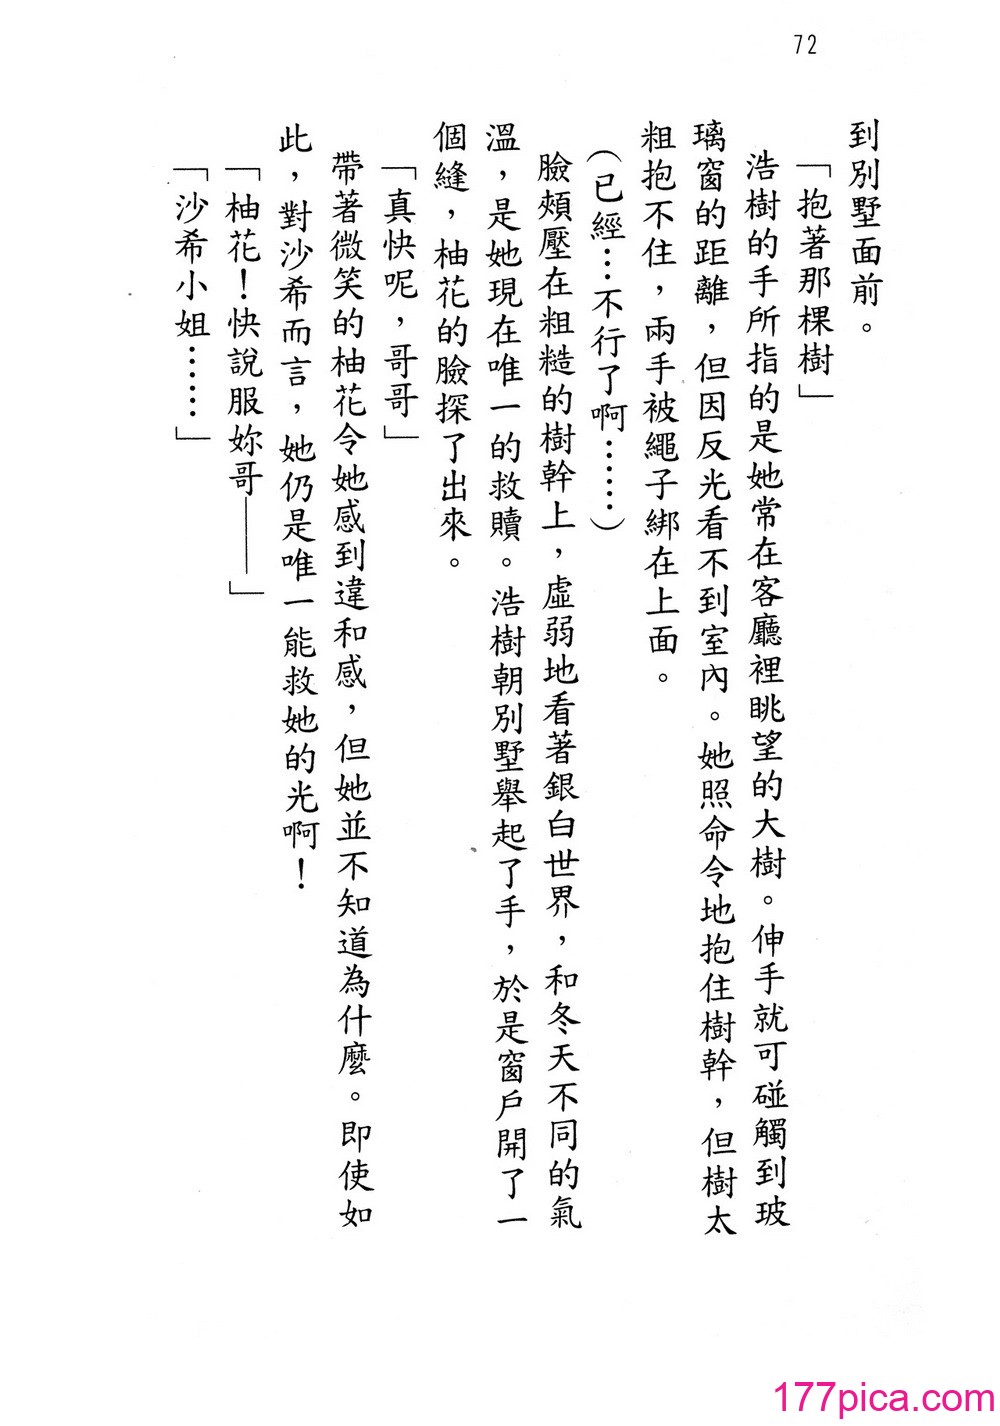 72
到別墅面前。
「抱著那棵樹」
浩樹的手所指的是她常在客廳裡眺望的大樹。伸手就可碰觸到玻
璃窗的距離，但因反光看不到室內。她照命令地抱住樹幹，但樹太
粗抱不住，兩手被繩子綁在上面。
（已經…不行了啊……）
臉頰壓在粗糙的樹幹上，虛弱地看著銀白世界，和冬天不同的氣
溫，是她現在唯一的救贖。浩樹朝別墅舉起了手，於是窗戶開了一
個縫，柚花的臉探了出來。
「真快呢，哥哥」
帶著微笑的柚花令她感到違和感，但她並不知道為什麼。即使如
此，對沙希而言，她仍是唯一能救她的光啊！
「柚花！快說服妳哥——」
「沙希小姐……」
177pica.com